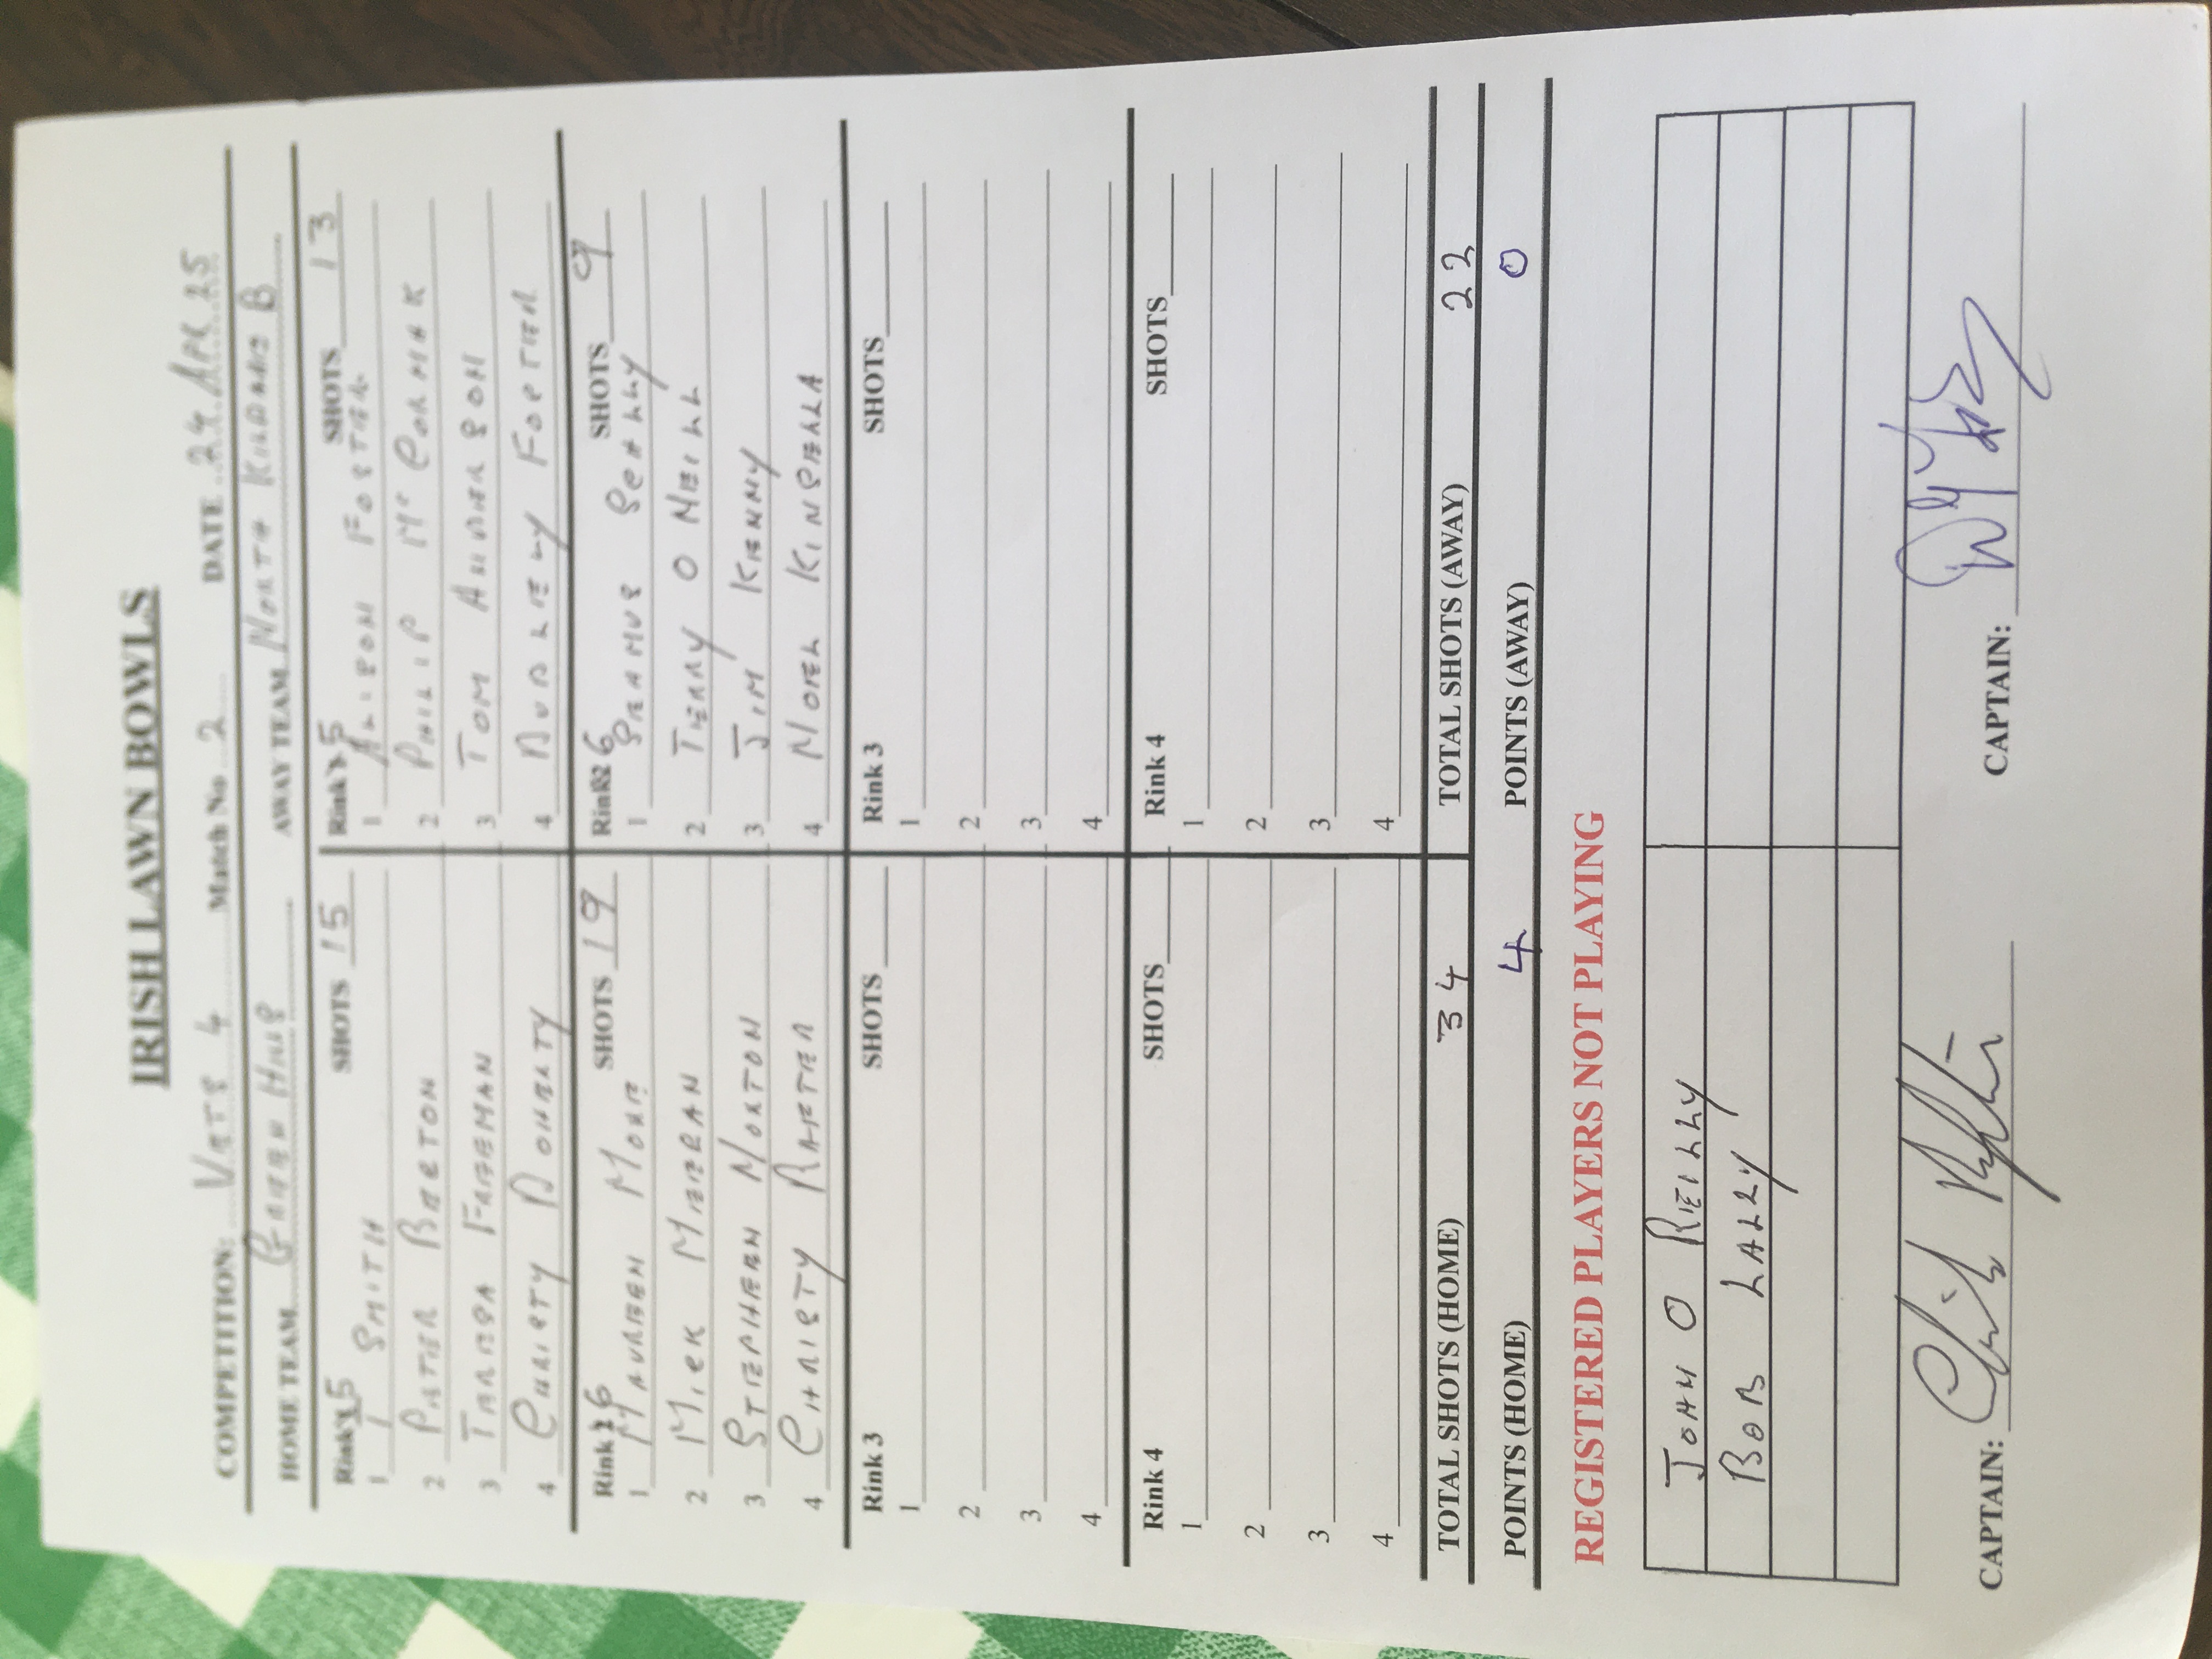 IRISH LAWN BOWLS
COMPETITION: VETS 4 Match No 2 DATE 24 APR 25
HOME TEAM GREEN HILLS AWAY TEAM NORTH KILDARE B
Rink 5 SHOTS 15 Rink 5 SHOTS 13
1 SMITH 1 ALISON FOSTER
2 PETER BRETON 2 PHILIP MC CORMAK
3 TERESA FREEMAN 3 TOM ANDERSON
4 CHRISTY DOHERTY 4 AUDLEY FOSTER
Rink 6 SHOTS 19 Rink 6 SHOTS 9
1 MAUREEN MORE 1 SEAMUS SCALLY
2 MICK MEERAN 2 TERRY O NEILL
3 STEPHEEN NORTON 3 JIM KENNY
4 CHRISTY RAFTER 4 NOEL KINSELLA
Rink 3 SHOTS Rink 3 SHOTS
1 1
2 2
3 3
4 4
Rink 4 SHOTS Rink 4 SHOTS
1 1
2 2
3 3
4 4
TOTAL SHOTS (HOME) 34 TOTAL SHOTS (AWAY) 22
POINTS (HOME) 4 POINTS (AWAY) 0
REGISTERED PLAYERS NOT PLAYING
JOHN O REILLY
BOB LALLY
CAPTAIN: CAPTAIN: